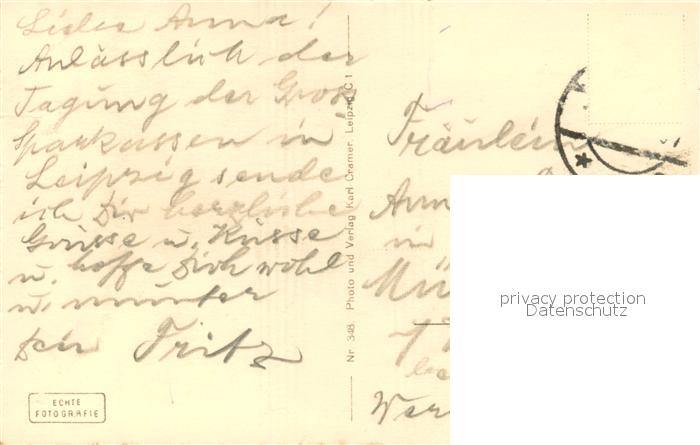 Liebe Anna!
Anlässlich der
Tagung der Gross
Sparkassen in
Leipzig sende
ich Dir herzliche
Grüsse u. Küsse
u. hoffe Dich wohl
u. munter
Dein Fritz
ECHTE
FOTOGRAFIE
Nr. 348 Photo und Verlag Karl Cramer, Leipzig C 1
Fräulein
in
privacy protection
Datenschutz